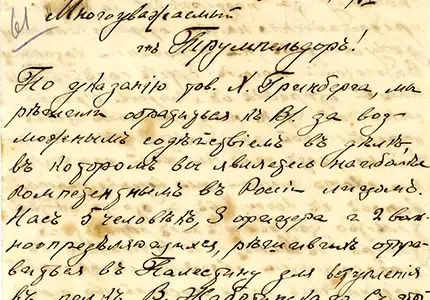 61
Многоуважаемый
тъ Трумпельдоръ!
По указанію тов. Х. Гринберга, мы
рѣшили обратиться къ В/. за воз-
можнымъ содѣйствіемъ въ дѣлѣ,
въ которомъ вы являетесь наиболѣе
компетентнымъ въ Росіи лицомъ.
Насъ 5 человѣкъ, 3 офицера и 2 воль-
ноопредѣляющихся, рѣшившихъ отпра-
виться въ Палестину для вступленія
въ полкъ В. Жаботинскаго